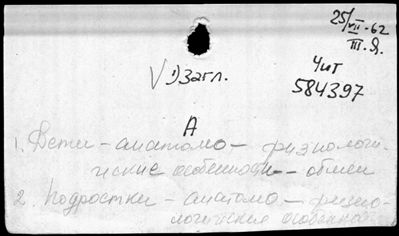 25/VII-62
III. Я.
V 1) Загл.
Чит
584397
А
1. Дети – анатомо – физиологи-
ческие особенности – обмен
2. Подростки – анатомо – физио-
логические особенно